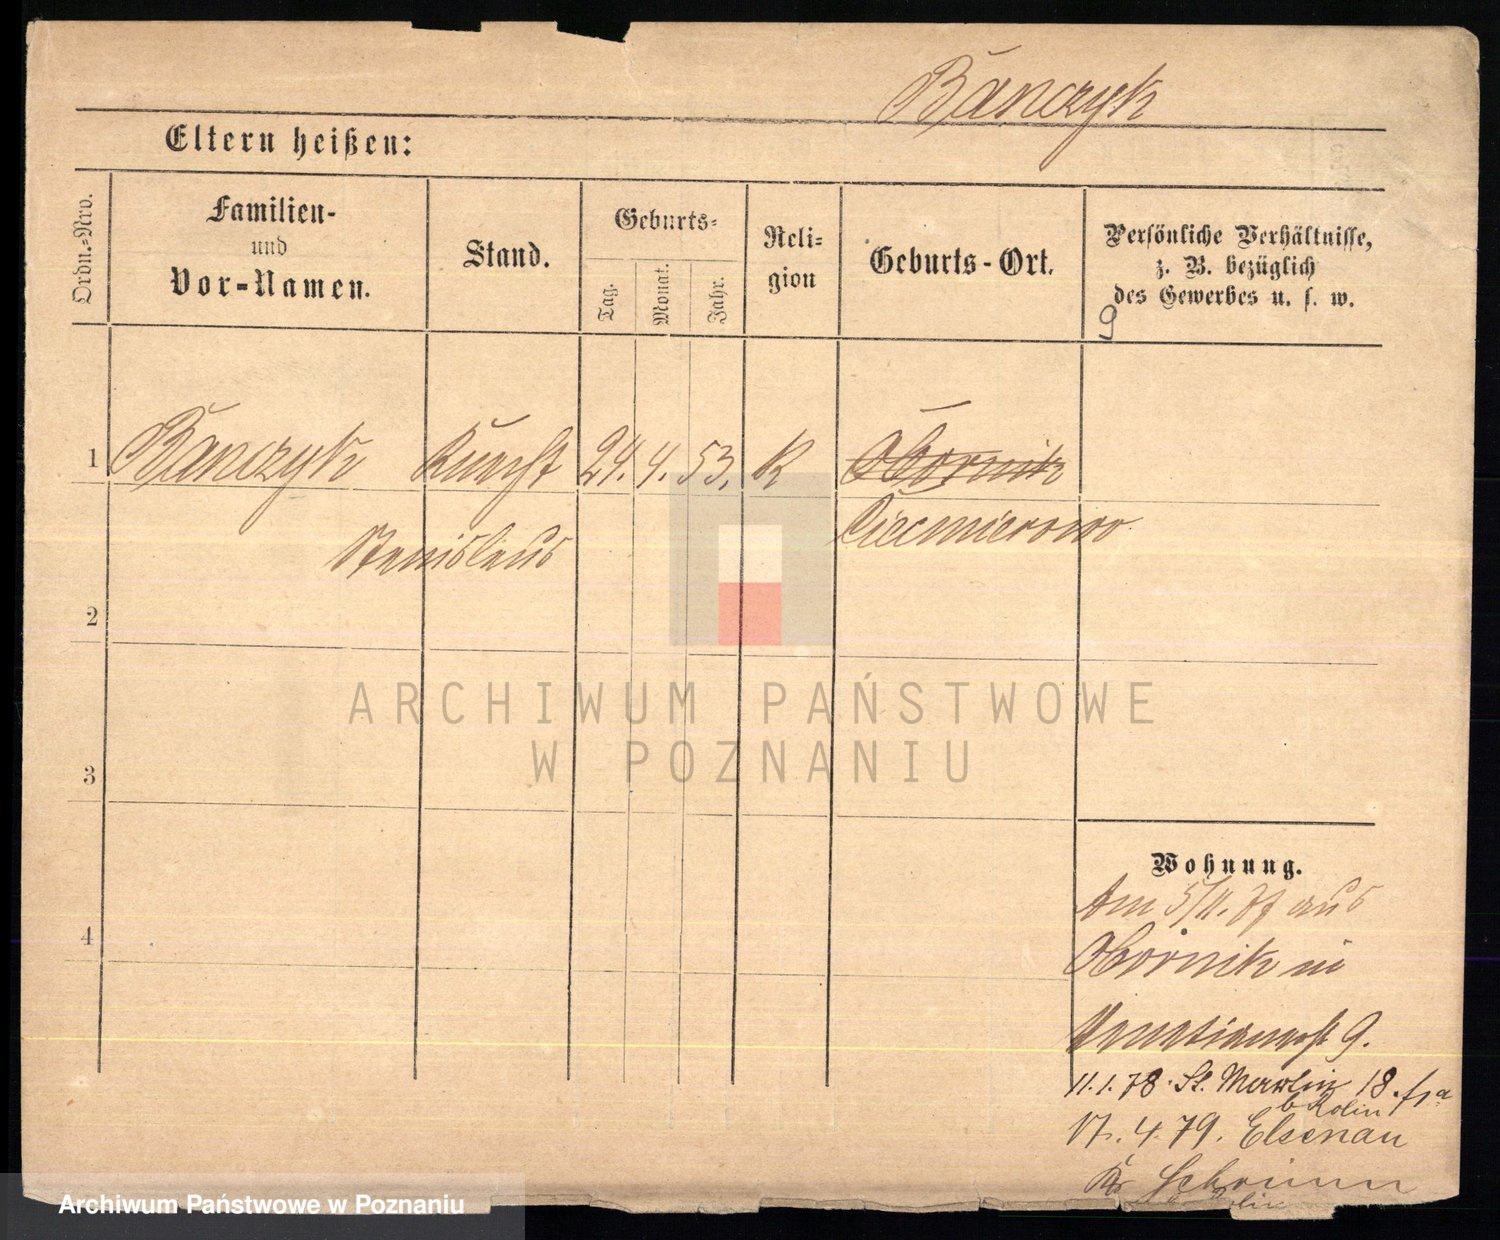 Bańczyk
Eltern heißen:
Ordn.-Nro.
Familien-
und
Vor-Namen.
Stand.
Geburts-
Tag.
Monat.
Jahr.
Reli-
gion
Geburts-Ort.
Persönliche Verhältnisse,
z. B. bezüglich
des Gewerbes u. s. w.
9
1 Bańczyk Knecht 24. 4. 53. K Obornik
Stanislaus
2
3
4
ARCHIWUM PAŃSTWOWE
W POZNANIU
Wohnung.
Am 5/11. 77 aus
Obornik in
Venetianerst 9.
11.1.78. St. Martin 18.
17. 4. 79. Elsenau
Kr Schrimm
Archiwum Państwowe w Poznaniu